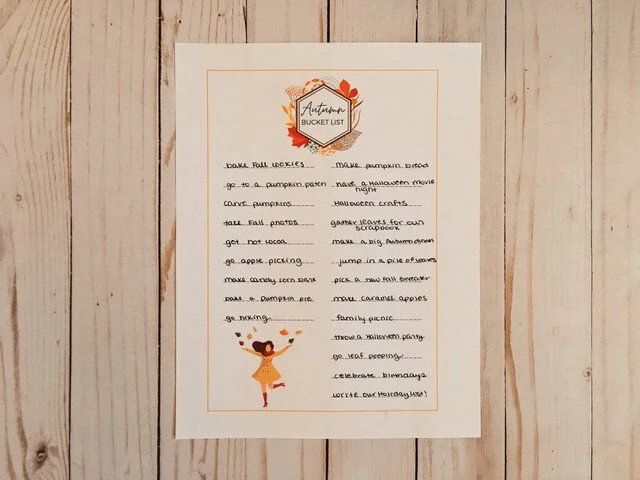 Autumn
BUCKET LIST
bake Fall cookies
go to a pumpkin patch
carve pumpkins
take Fall photos
get hot cocoa
go apple picking
make candy corn bark
bake a pumpkin pie
go hiking
make pumpkin bread
have a Halloween movie
night
Halloween crafts
gather leaves for our
scrapbook
make a big Autumn dinner
jump in a pile of leaves
pick a new Fall sweater
make caramel apples
family picnic
throw a Halloween party
go leaf peeping
celebrate birthdays
write our Holiday list!